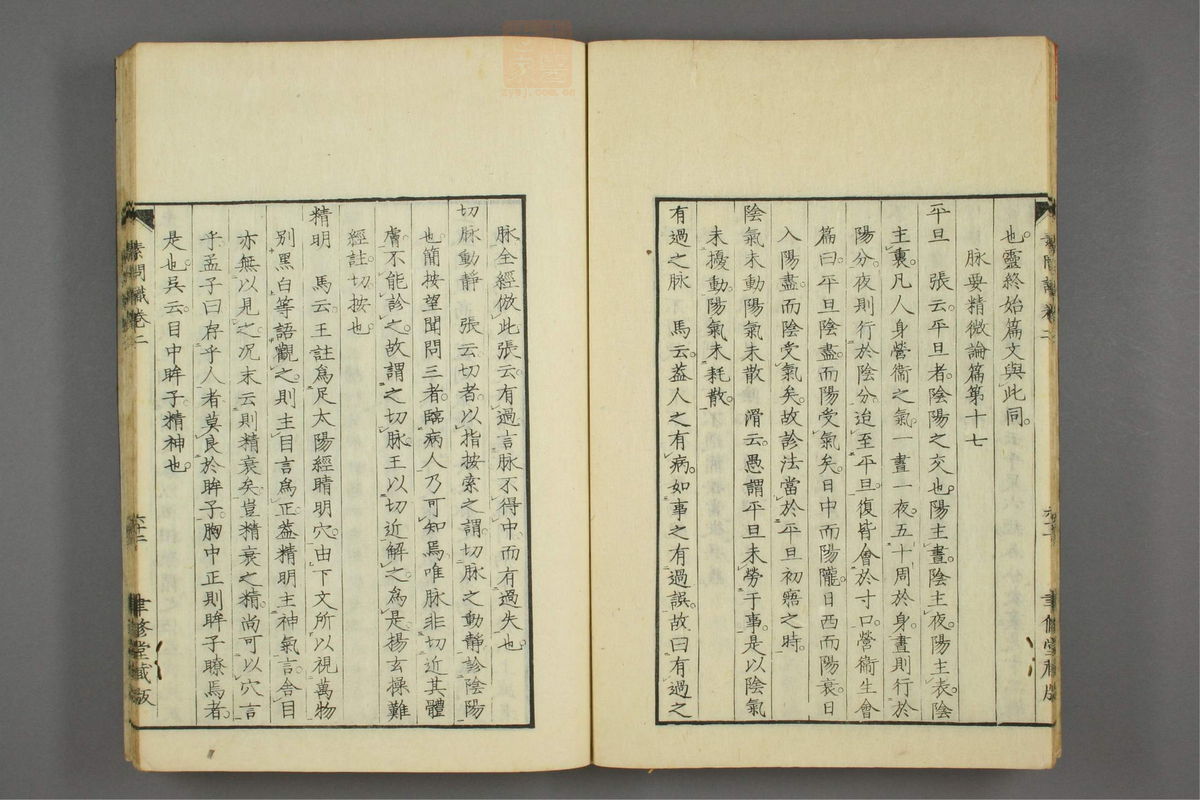 也靈終始篇文與此同。
脉要精微論篇第十七
平旦　張云平旦者陰陽之交也陽主晝陰主夜陽主表陰
主裏。凡人身營衞之氣一晝一夜。五十周於身。晝則行於
陽分夜則行於陰分迨至平旦。復皆會於寸口營衞生會
篇曰。平旦陰盡。而陽受氣矣。日中而陽隴。日西而陽衰。日
入陽盡。而陰受氣矣。故診法當於平旦初寤之時。
陰氣未動陽氣未散　滑云愚謂平旦未勞于事。是以陰氣
未擾動。陽氣未耗散。
有過之脉　馬云。葢人之有病。如事之有過誤。故曰有過之
脉全經倣此張云。有過言脉不得中。而有過失也
切脉動靜　張云。切者。以指按索之謂。切脉之動靜。診陰陽
也。簡按望聞問三者。臨病人乃可知焉唯脉非切近其體
膚。不能診之。故謂之切脉。王以切近解之。為是。揚玄操難
經註。切按也。
精明　馬云。王註爲足太陽經睛明穴。由下文所以視萬物
別黑白等語觀之。則主目言爲正。葢精明主神氣言。舍目
亦無以見之。况末云則精衰矣。豈精衰之精。尚可以穴言
乎孟子曰存乎人者莫良於眸子胸中正則眸子瞭焉者。
是也吳云。目中眸子精神也。
素問識卷二
六十二
聿修堂藏版